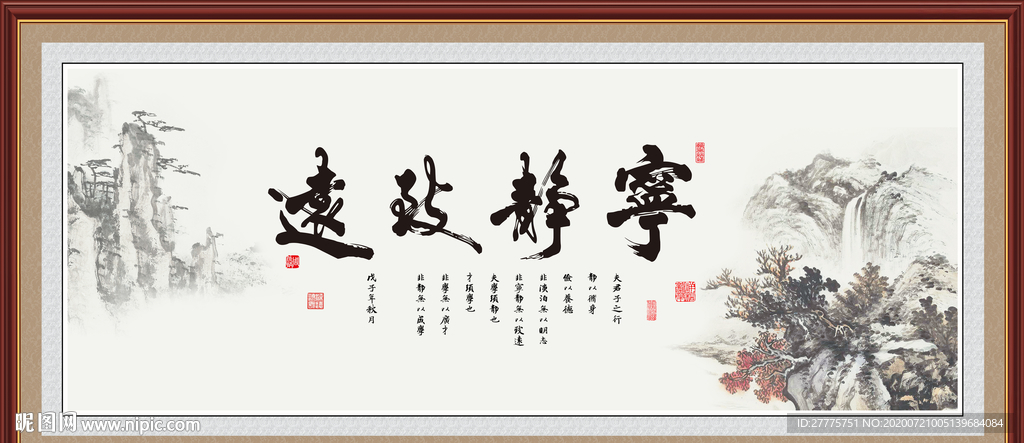 寧靜致遠
夫君子之行
靜以脩身
儉以養德
非淡泊無以明志
非寧靜無以致遠
夫學須靜也
才須學也
非學無以廣才
非靜無以成學
戊子年秋月
昵图网 www.nipic.com
ID:27775751 NO:20200721005139684084